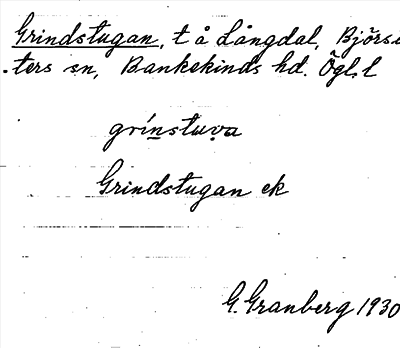 Grindstugan, t å Långdal, Björsä
ters sn, Bankekinds hd. Ögl. l
grinstuva
Grindstugan ek
G. Granberg 1930